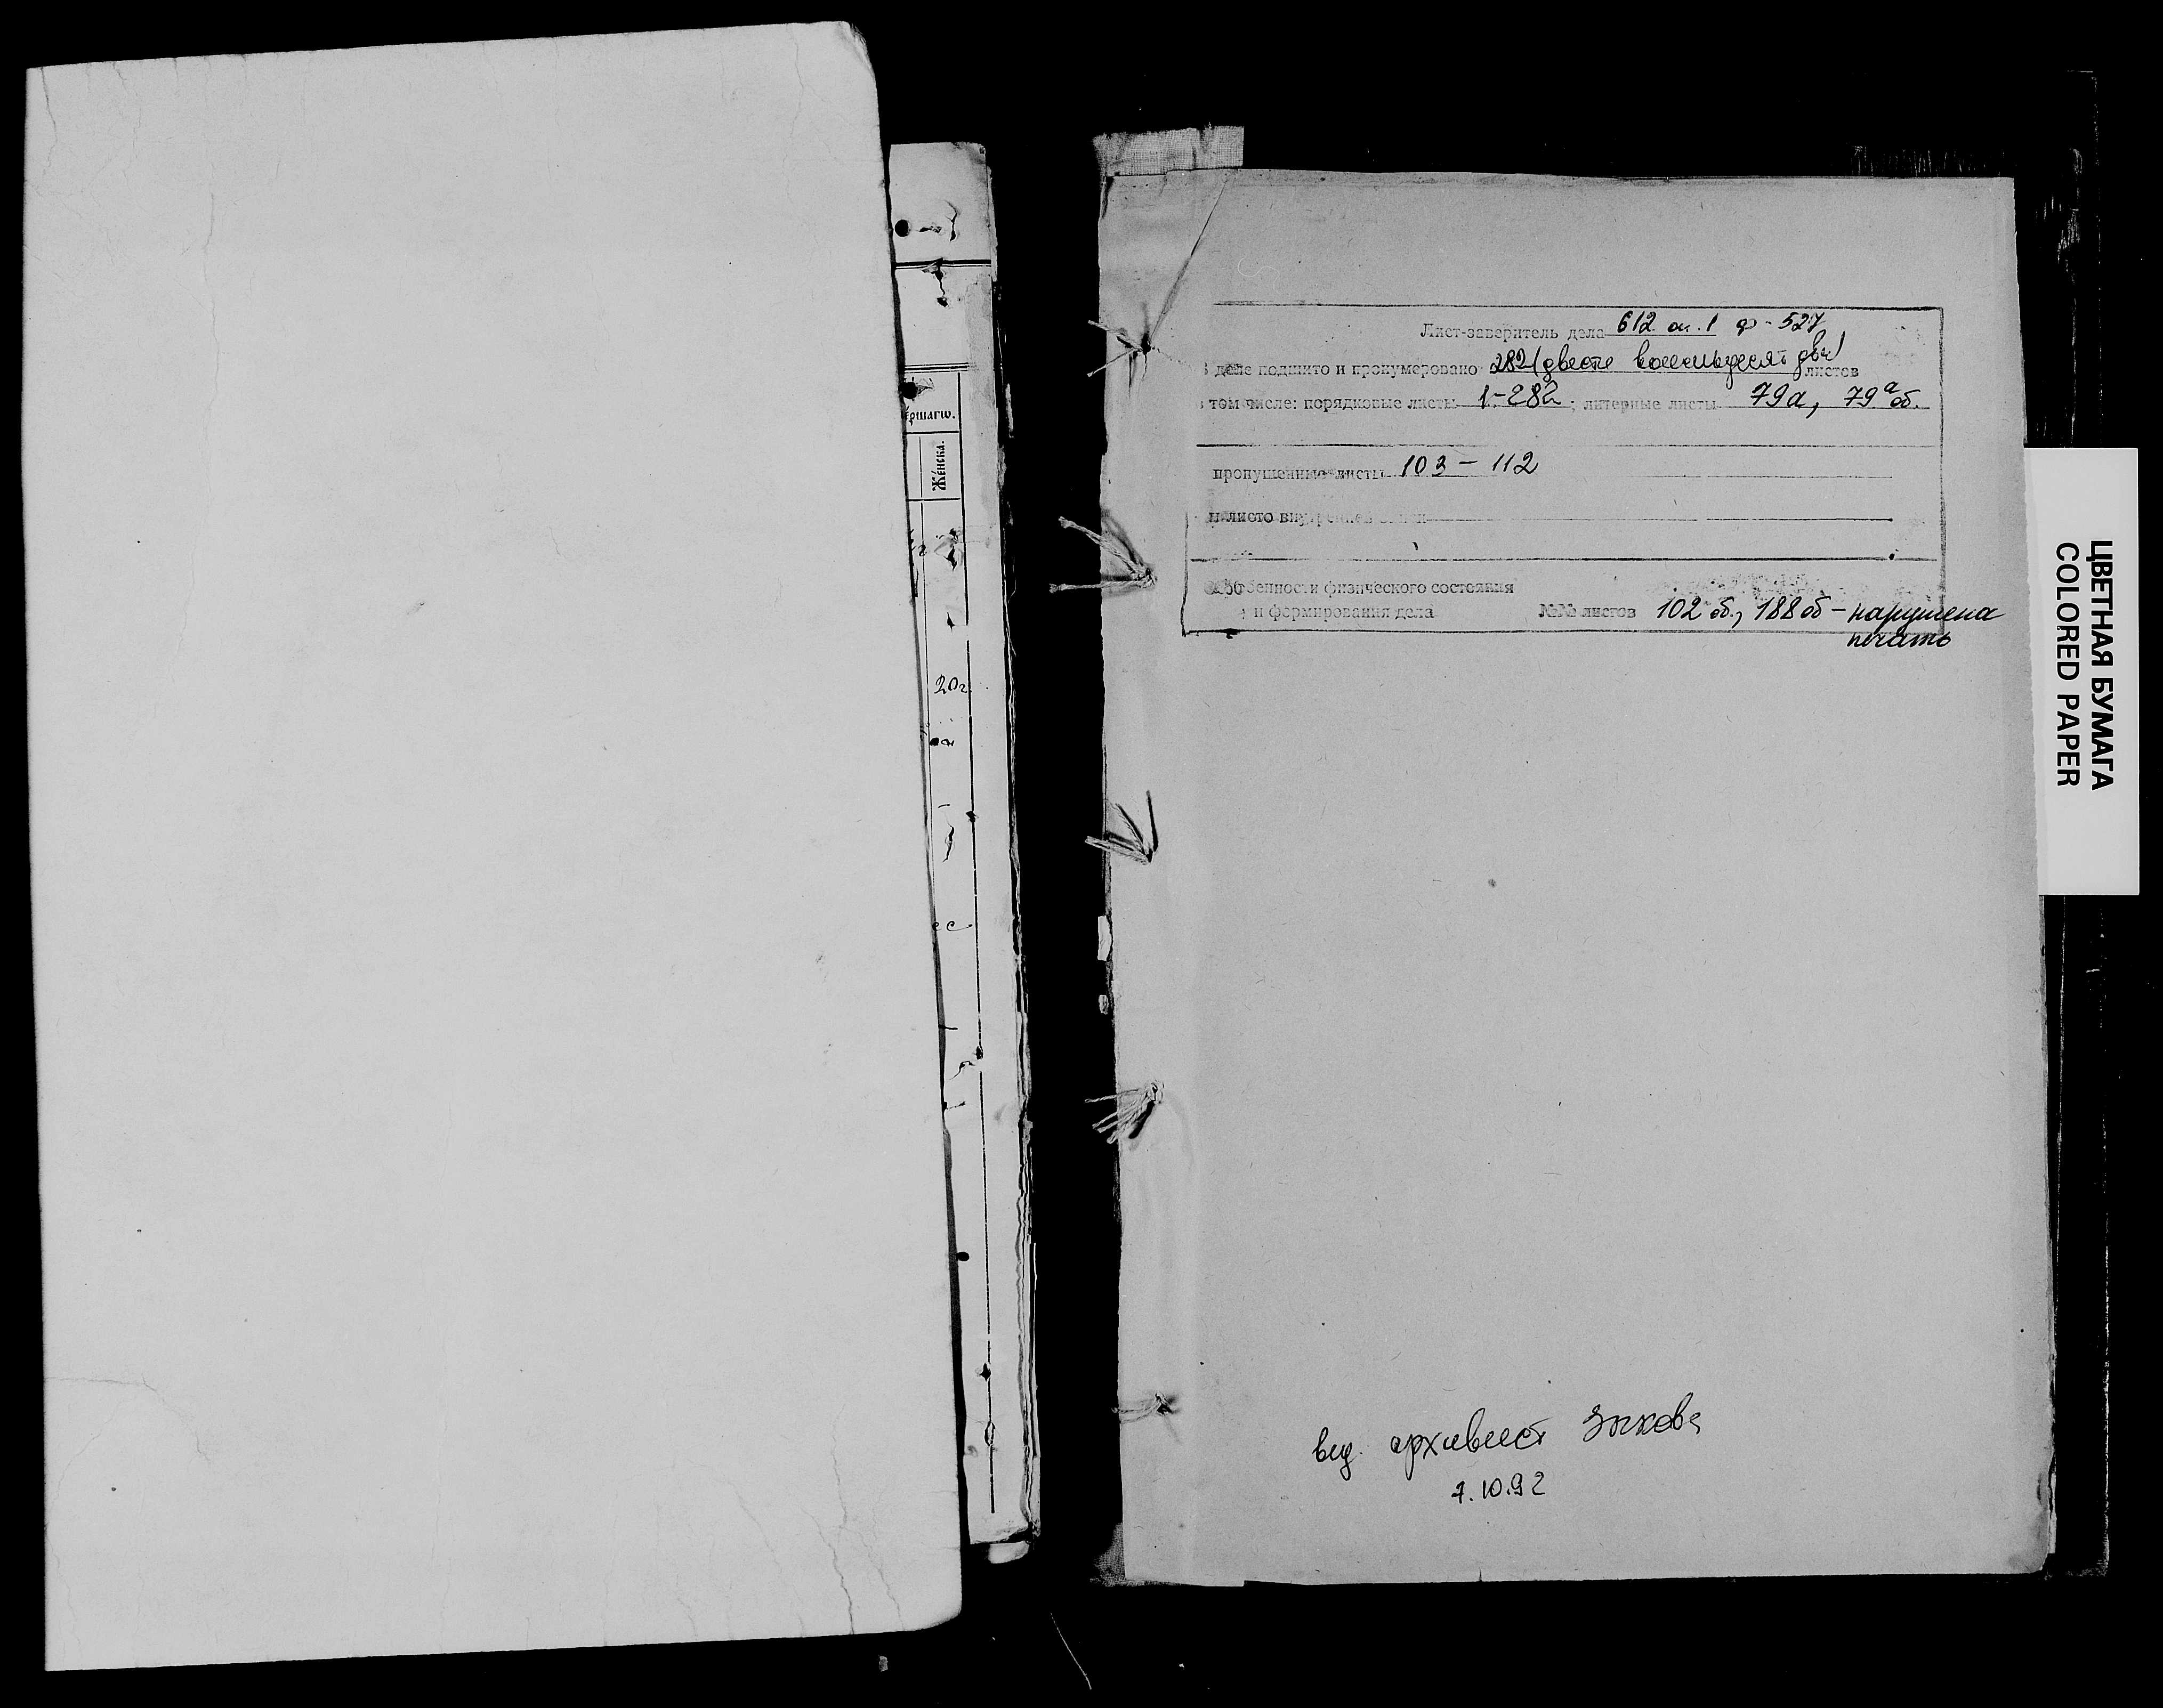 ершагw.
Же́нска.
20г.
Лист-заверитель дела 612 оп. 1 ф - 527
В деле подшито и пронумеровано 282 (двести восемьдесят два) листов
в том числе: порядковые листы 1-282; литерные листы 79а, 79а об.
пропущенные листы 103 - 112
и листо внутренней описи
Особенности физического состояния
и формирования дела №№ листов 102 об., 188 об - нарушена
печать
вед. архивист Зыкова
7.10.92
ЦВЕТНАЯ БУМАГА
COLORED PAPER